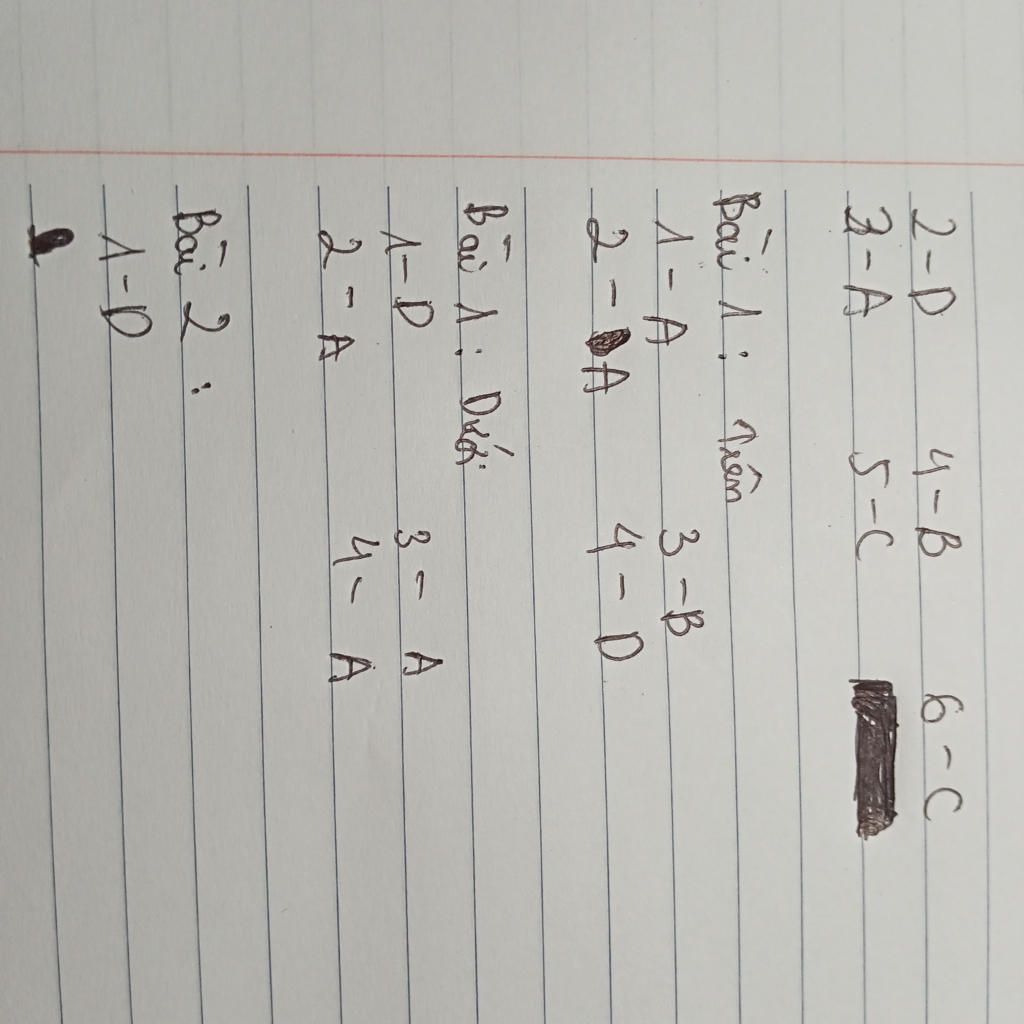 2-D 4-B 6-C
3-A 5-C
Bài 1: Trên
1-A 3-B
2-A 4-D
Bài 1: Dưới
1-D 3-A
2-A 4-A
Bài 2:
1-D